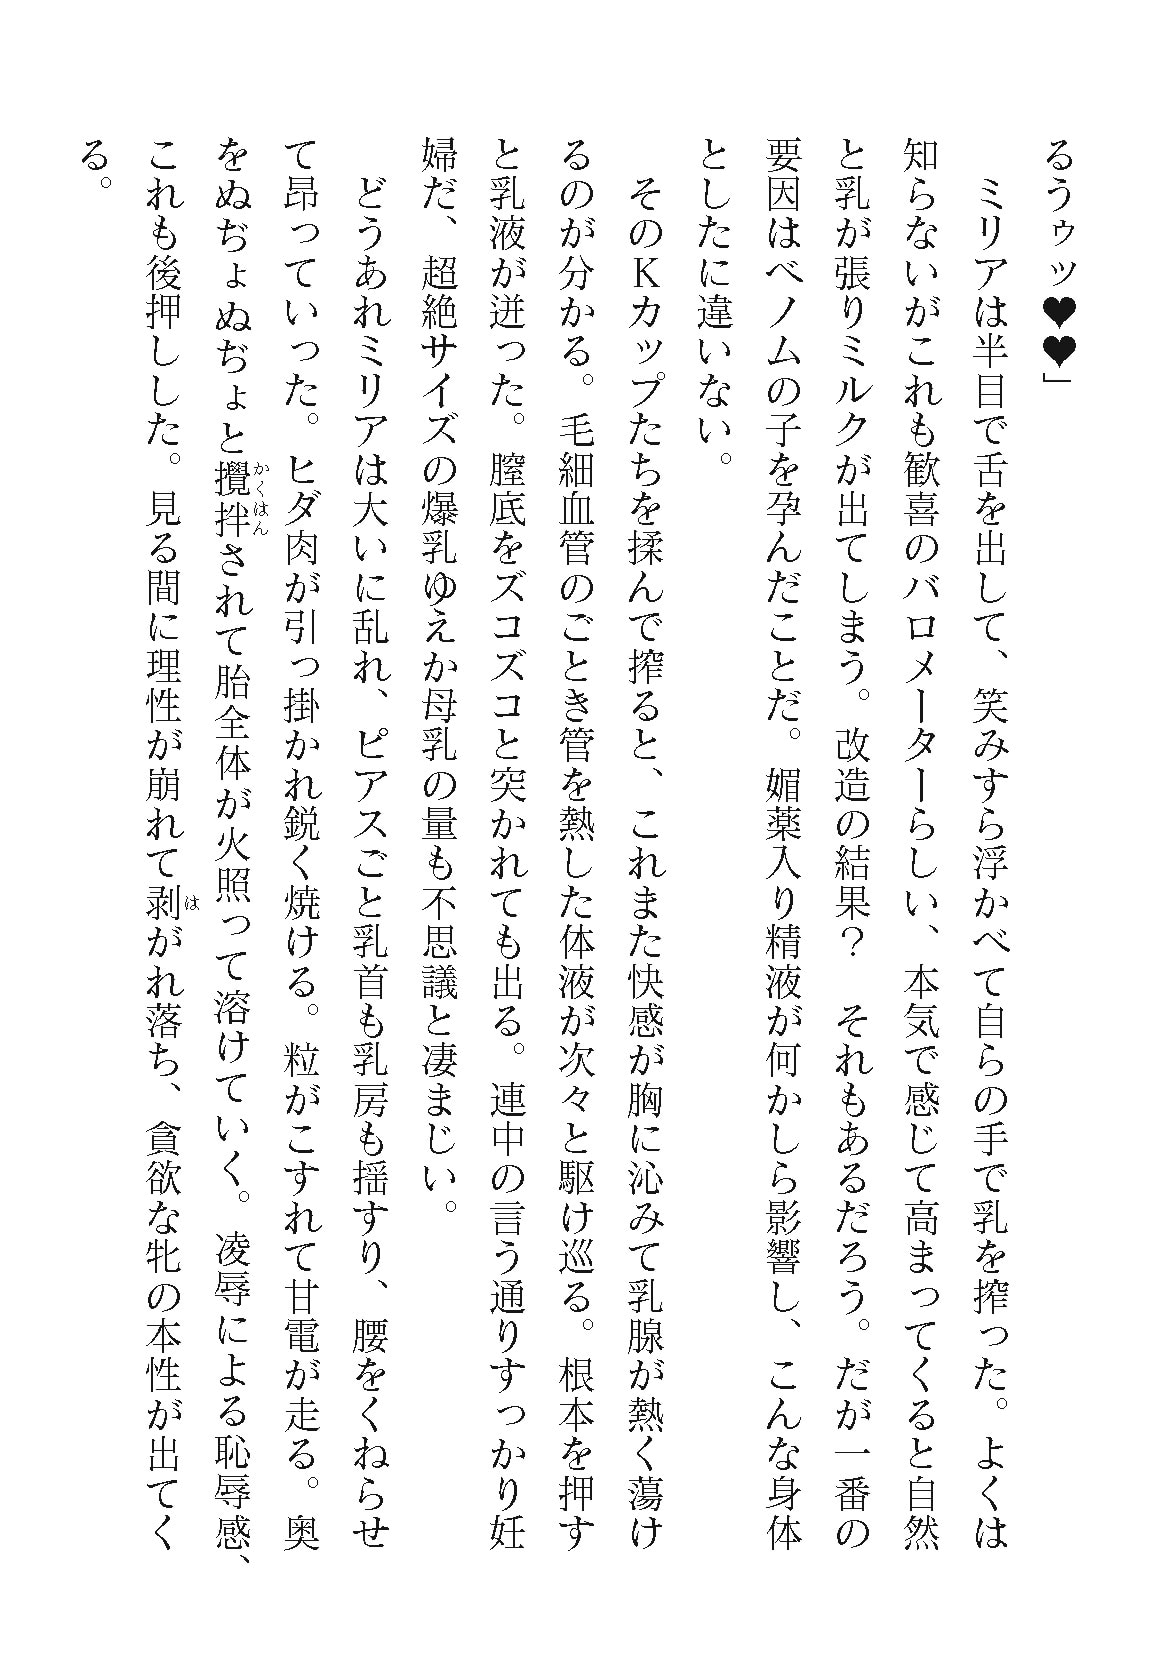 るうゥッ♥♥」
　ミリアは半目で舌を出して、笑みすら浮かべて自らの手で乳を搾った。よくは
知らないがこれも歓喜のバロメーターらしい、本気で感じて高まってくると自然
と乳が張りミルクが出てしまう。改造の結果？　それもあるだろう。だが一番の
要因はベノムの子を孕んだことだ。媚薬入り精液が何かしら影響し、こんな身体
としたに違いない。
　そのＫカップたちを揉んで搾ると、これまた快感が胸に沁みて乳腺が熱く蕩け
るのが分かる。毛細血管のごとき管を熱した体液が次々と駆け巡る。根本を押す
と乳液が迸った。膣底をズコズコと突かれても出る。連中の言う通りすっかり妊
婦だ、超絶サイズの爆乳ゆえか母乳の量も不思議と凄まじい。
　どうあれミリアは大いに乱れ、ピアスごと乳首も乳房も揺すり、腰をくねらせ
て昂っていった。ヒダ肉が引っ掛かれ鋭く焼ける。粒がこすれて甘電が走る。奥
をぬぢょぬぢょと攪拌かくはんされて胎全体が火照って溶けていく。凌辱による恥辱感、
これも後押しした。見る間に理性が崩れて剥はがれ落ち、貪欲な牝の本性が出てく
る。